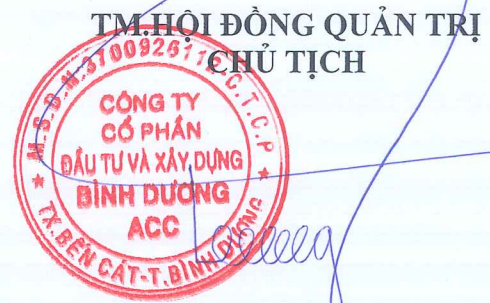 TM.HỘI ĐỒNG QUẢN TRỊ
CHỦ TỊCH
M.S.D.N:3700926112-C.T.C.P
CÔNG TY
CỔ PHẦN
ĐẦU TƯ VÀ XÂY DỰNG
BÌNH DƯƠNG
ACC
TX.BẾN CÁT-T.BÌNH DƯƠNG